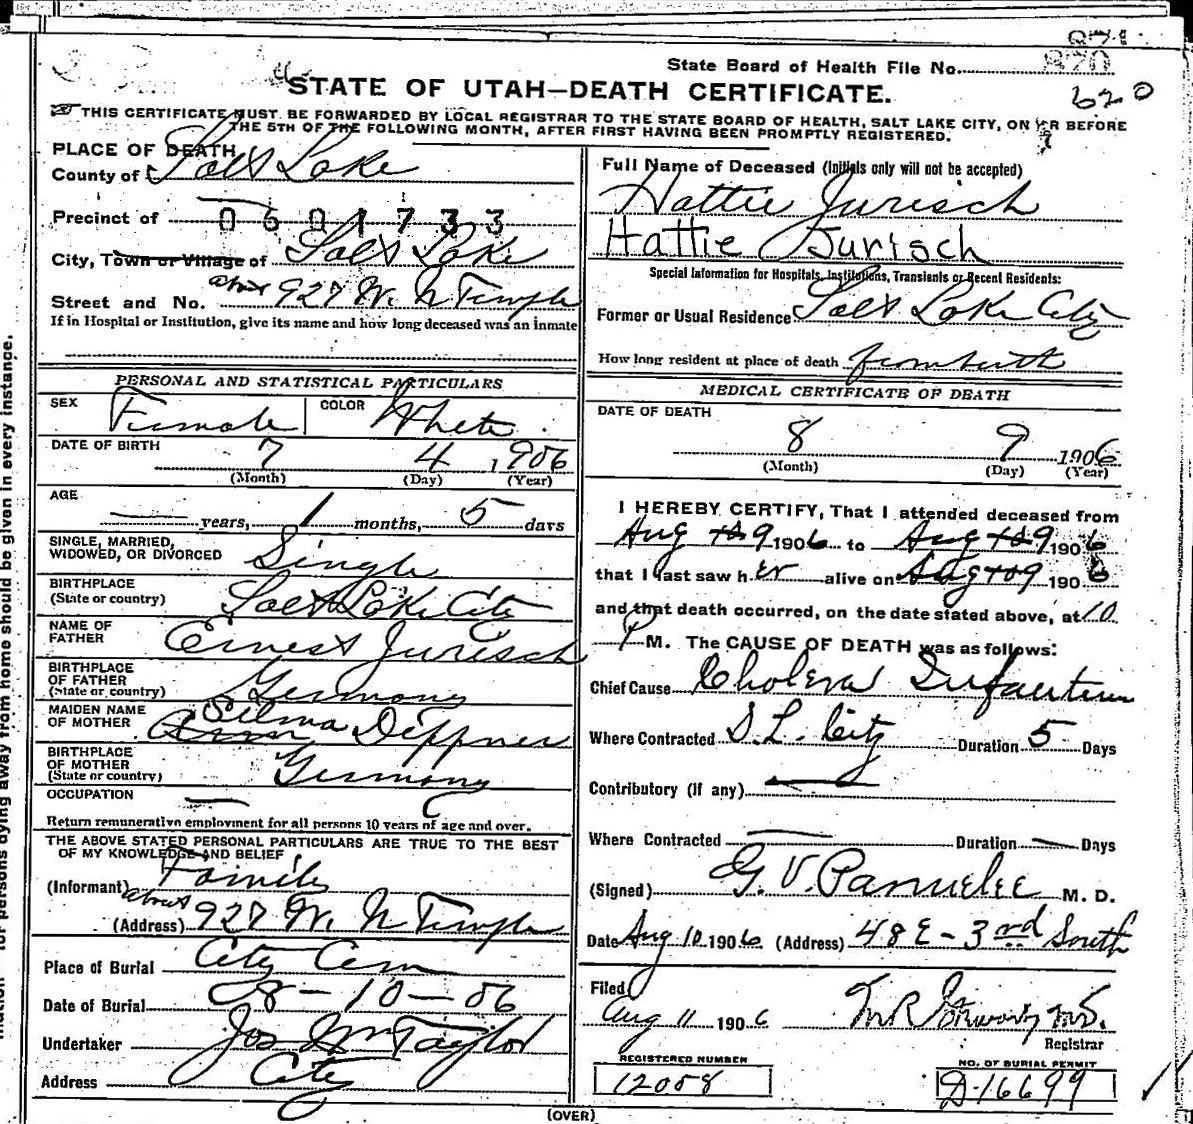 871
870
State Board of Health File No.
620
STATE OF UTAH—DEATH CERTIFICATE.
THIS CERTIFICATE MUST BE FORWARDED BY LOCAL REGISTRAR TO THE STATE BOARD OF HEALTH, SALT LAKE CITY, ON OR BEFORE
THE 5TH OF THE FOLLOWING MONTH, AFTER FIRST HAVING BEEN PROMPTLY REGISTERED.
PLACE OF DEATH
County of Salt Lake
Precinct of 0601733
City, Town or Village of Salt Lake
Street and No. about 927 W. N Temple
If in Hospital or Institution, give its name and how long deceased was an inmate
PERSONAL AND STATISTICAL PARTICULARS
SEX Female COLOR White
DATE OF BIRTH 7 4 1906
(Month) (Day) (Year)
AGE
— years, 1 months, 5 days
SINGLE, MARRIED,
WIDOWED, OR DIVORCED Single
BIRTHPLACE
(State or country) Salt Lake City
NAME OF
FATHER Ernest Jurisch
BIRTHPLACE
OF FATHER
(State or country) Germany
MAIDEN NAME
OF MOTHER Selma Deppner
BIRTHPLACE
OF MOTHER
(State or country) Germany
OCCUPATION —
Return remunerative employment for all persons 10 years of age and over.
THE ABOVE STATED PERSONAL PARTICULARS ARE TRUE TO THE BEST
OF MY KNOWLEDGE AND BELIEF
(Informant) Family
(Address) about 927 W. N Temple
Place of Burial City Cem
Date of Burial 8-10-06
Undertaker Jos Wm Taylor
Address City
Full Name of Deceased (Initials only will not be accepted)
Hattie Jurisch
Hattie Jurisch
Special Information for Hospitals, Institutions, Transients or Recent Residents:
Former or Usual Residence Salt Lake City
How long resident at place of death from birth
MEDICAL CERTIFICATE OF DEATH
DATE OF DEATH
8 9 1906
(Month) (Day) (Year)
I HEREBY CERTIFY, That I attended deceased from
Aug 10 9 1906 to Aug 10 9 1906
that I last saw her alive on Aug 10 9 1906
and that death occurred, on the date stated above, at 10
P M. The CAUSE OF DEATH was as follows:
Chief Cause Cholera Infantum
Where Contracted S. L. City Duration 5 Days
Contributory (if any) —
Where Contracted — Duration — Days
(Signed) G. V. Parmelee M. D.
Date Aug 10 1906 (Address) 48 E - 3rd South
Filed
Aug 11 1906 M.D.
Registrar
REGISTERED NUMBER
12058
NO. OF BURIAL PERMIT
D-16699
(OVER)
for persons dying away from home should be given in every instance.